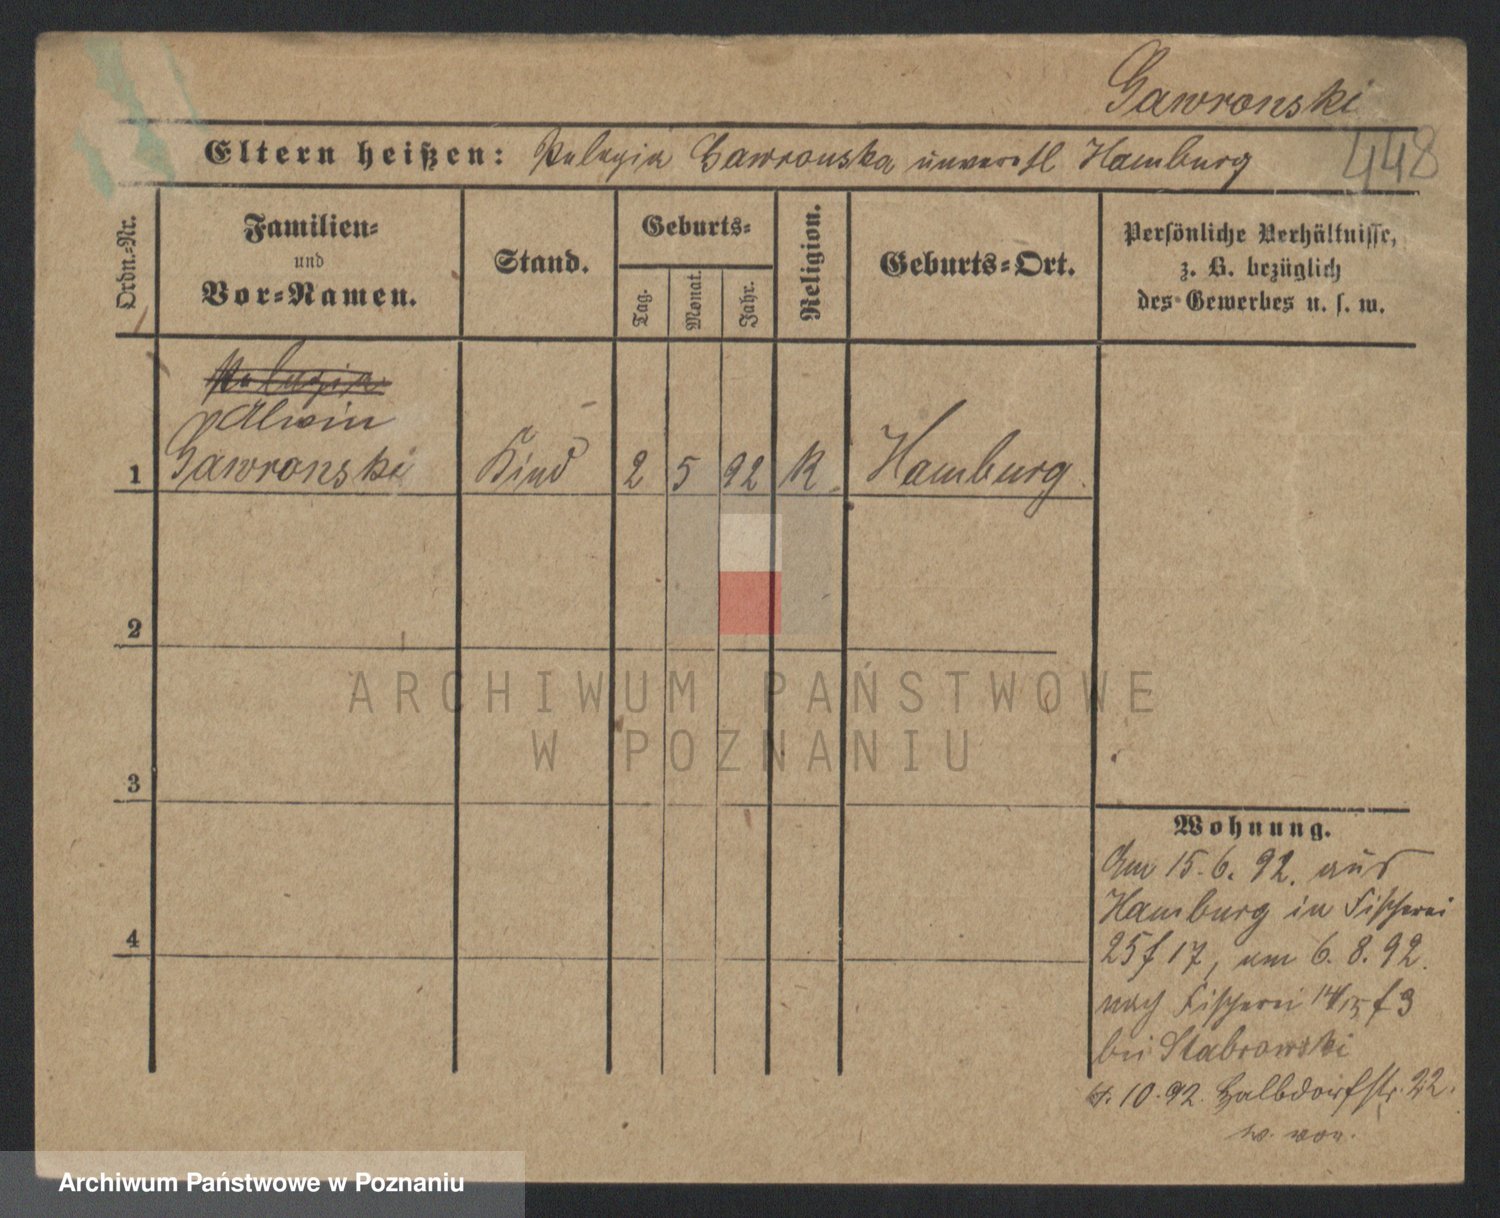 Gawronski
Eltern heißen: Pelagia Gawronska unverehl Hamburg
448
Ordn.-Nr.
Familien-
und
Vor-Namen.
Stand.
Geburts-
Tag.
Monat.
Jahr.
Religion.
Geburts-Ort.
Persönliche Verhältnisse,
z. B. bezüglich
des Gewerbes u. s. w.
Pelagia
Alwin
1 Gawronski Kind 2 5 92 K Hamburg
2
3
4
Wohnung.
Am 15. 6. 92. aus
Hamburg in Fischerei
25 f 17, am 6. 8. 92.
nach Fischerei 14/15 f 3
bei Stabrowski
10. 92. Halbdorfstr. 22.
w. vor.
ARCHIWUM PAŃSTWOWE
W POZNANIU
Archiwum Państwowe w Poznaniu